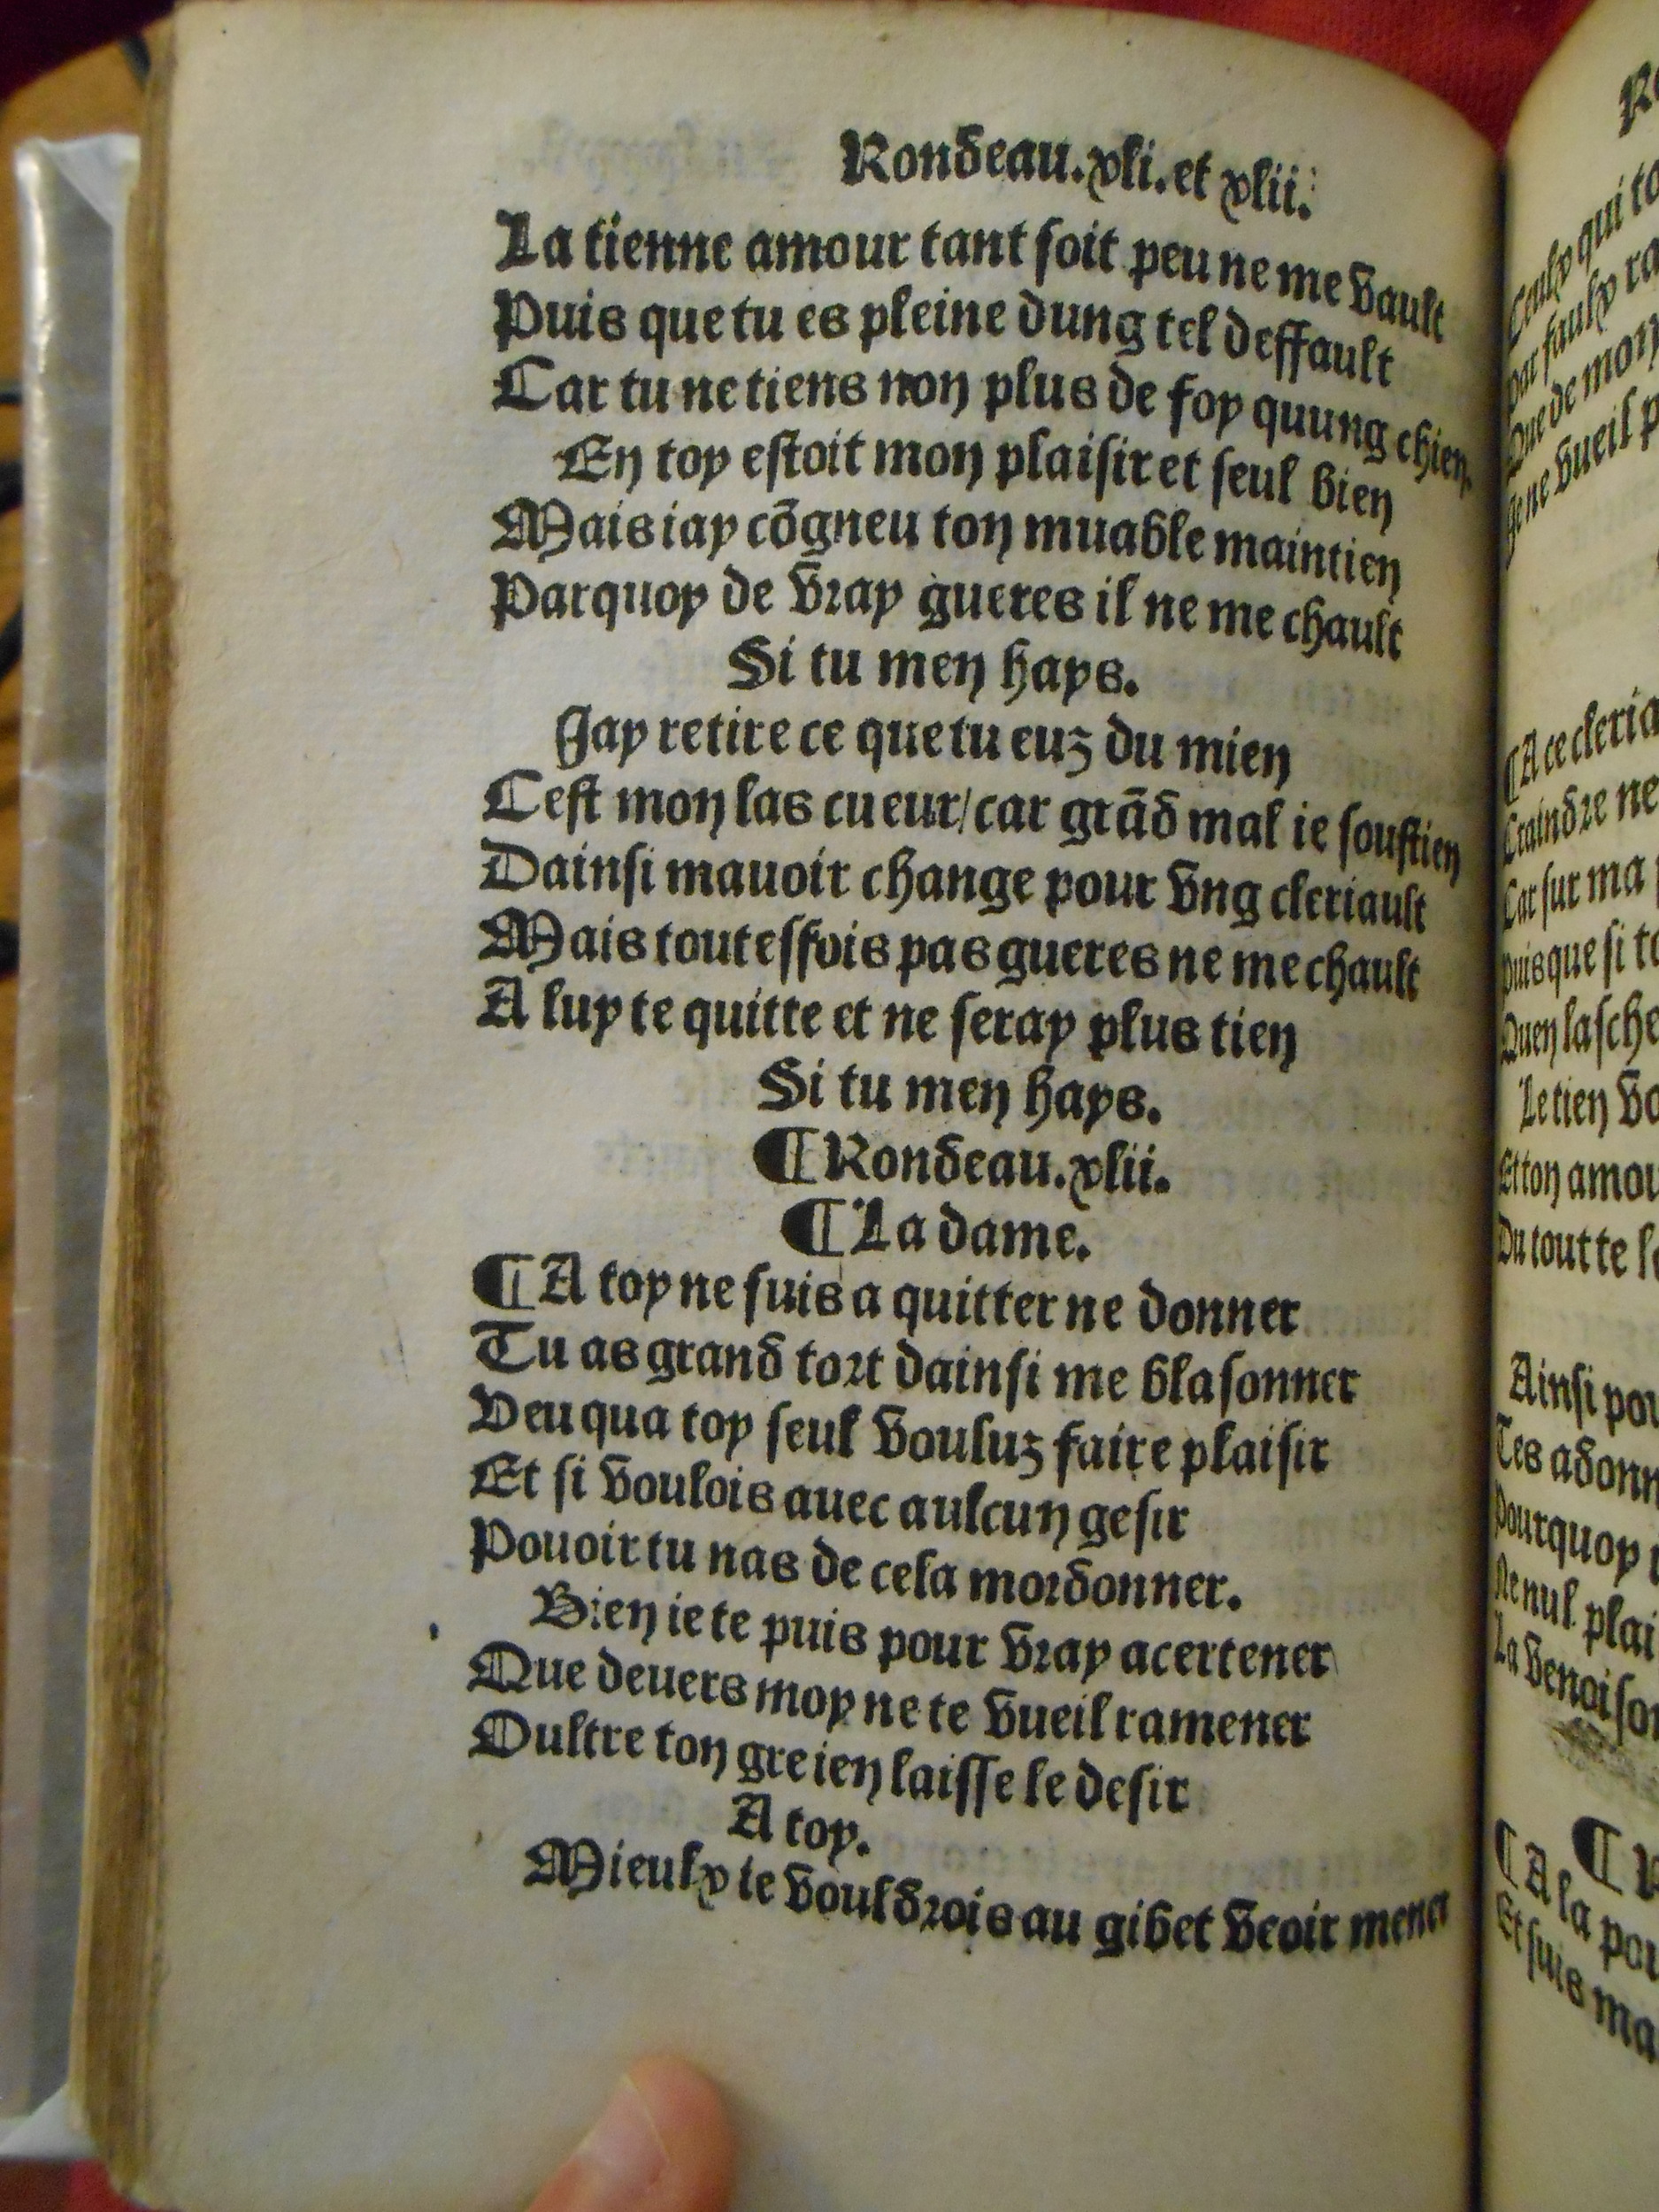 Rondeau.xli.et xlii.
La tienne amour tant soit peu ne me vault
Puis que tu es pleine dung tel deffault
Car tu ne tiens non plus de foy quung chien.
En toy estoit mon plaisir et seul bien
Mais iay cõgneu ton muable maintien
Parquoy de vray gueres il ne me chault
Si tu men hays.
Jay retire ce que tu euz du mien
Cest mon las cueur/car grãd mal ie soustien
Dainsi mauoir change pour vng cleriault
Mais touteffois pas gueres ne me chault
A luy te quitte et ne seray plus tien
Si tu men hays.
¶Rondeau.xlii.
¶La dame.
¶A toy ne suis a quitter ne donner
Tu as grand tort dainsi me blasonner
Veu qua toy seul vouluz faire plaisir
Et si voulois auec aulcun gesir
Pouoir tu nas de cela mordonner.
Bien ie te puis pour vray acertener
Que deuers moy ne te vueil ramener
Oultre ton gre ien laisse le desir
A toy.
Mieulx te vouldrois au gibet veoir mener
Ceulx qui
Par faulx
Que de mon
Je ne vueil
¶A ce
Craindre ne
Car sur ma
Puis que si
Quen lasche
Le tien
Et ton
Du tout te
Ainsi
Tes
Pourquoy
Ne nul
La
¶
¶A la
Et suis